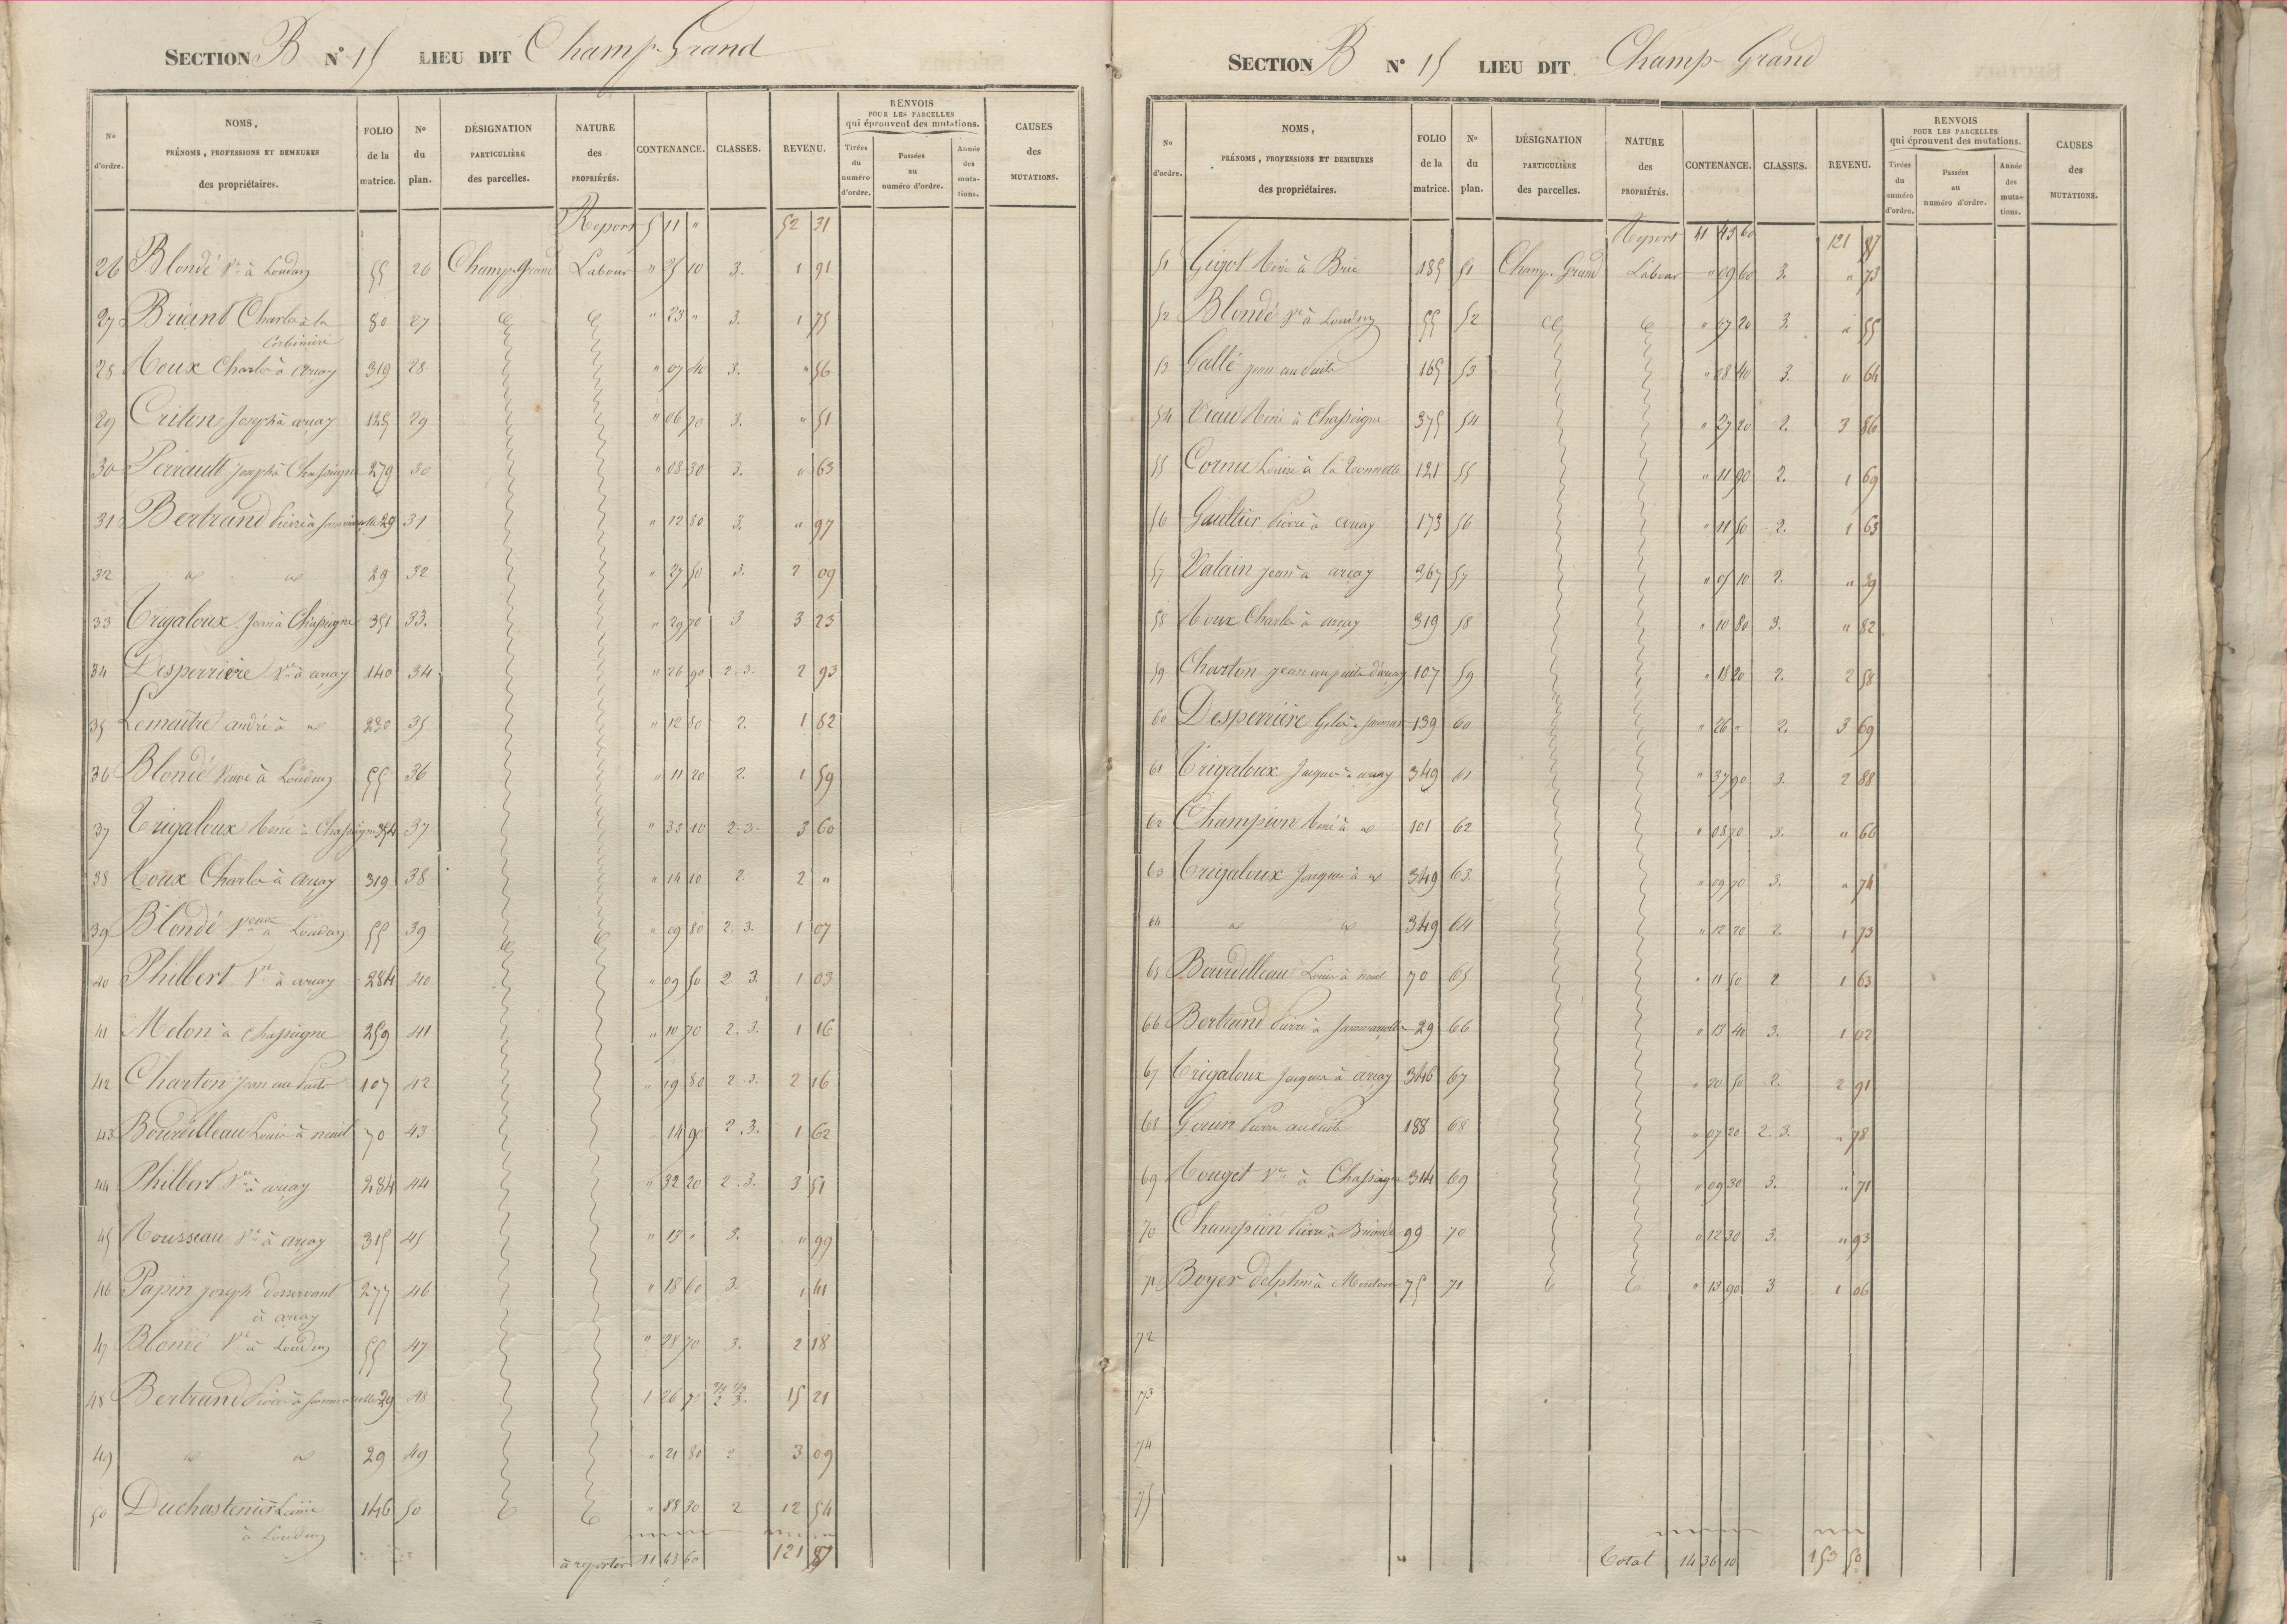 SECTION B N° 15 LIEU DIT Champ-Grand
N° d'ordre. NOMS, PRÉNOMS, PROFESSIONS ET DEMEURES des propriétaires. FOLIO de la matrice. N° du plan. DÉSIGNATION PARTICULIÈRE des parcelles. NATURE des PROPRIÉTÉS. CONTENANCE. CLASSES. REVENU. RENVOIS POUR LES PARCELLES qui éprouvent des mutations. Tirées du numéro d'ordre. Passées au numéro d'ordre. Année des muta-tions. CAUSES des MUTATIONS.
Report 5 11 " 52 31
26 Blondé Ve à Loudun 55 26 Champ-Grand Labour " 25 10 3. 1 91
27 Briant Charles à la Corbinière 80 27 " 23 " 3. 1 75
28 Roux Charles à arçay 319 28 " 07 40 3. " 56
29 Criton Joseph à arçay 125 29 " 06 70 3. " 51
30 Perrault Joseph à Chasseigne 279 30 " 08 30 3. " 63
31 Bertrand Pierre à 29 31 " 12 80 3. " 97
32 29 32 " 27 50 3. 2 09
33 Trigaloux Jean à Chasseigne 351 33. " 29 70 3 3 23
34 Desperrière Ve à arçay 140 34 " 26 90 2.3. 2 93
35 Lemaitre andré à 230 35 " 12 80 2. 1 82
36 Blondé Veuve à Loudun 55 36 " 11 20 2. 1 59
37 Trigaloux René à Chasseigne 354 37 " 33 10 2.3. 3 60
38 Roux Charles à arçay 319 38 " 14 10 2. 2 "
39 Blondé Veuve à Loudun 55 39 " 09 80 2.3. 1 07
40 Philbert Ve à arçay 284 40 " 09 50 2 3. 1 03
41 Melon à Chasseigne 259 41 " 10 70 2.3. 1 16
42 Charton Jean au Puits 107 42 " 19 80 2.3. 2 16
43 Bourdilleau Louis à neuil 70 43 14 90 2.3. 1 62
44 Philbert Ve à arçay 284 44 " 32 20 2.3. 3 51
45 Rousseau Ve à arçay 315 45 " 13 " 3. " 99
46 Papin Joseph desservant à arçay 277 46 " 18 60 3. 1 41
47 Blondé Ve à Loudun 55 47 " 28 70 3. 2 18
48 Bertrand Pierre à 29 48 1 26 70 2 3. 15 21
49 29 49 " 21 80 2 3 09
50 Duchastenier Louise à Loudun 146 50 " 88 30 2 12 54
à reporter 11 43 60 121 87
SECTION B N° 15 LIEU DIT Champ-Grand
N° d'ordre. NOMS, PRÉNOMS, PROFESSIONS ET DEMEURES des propriétaires. FOLIO de la matrice. N° du plan. DÉSIGNATION PARTICULIÈRE des parcelles. NATURE des PROPRIÉTÉS. CONTENANCE. CLASSES. REVENU. RENVOIS POUR LES PARCELLES qui éprouvent des mutations. Tirées du numéro d'ordre. Passées au numéro d'ordre. Année des muta-tions. CAUSES des MUTATIONS.
Report 11 43 60 121 87
51 Gigot René à Brie 185 51 Champ-Grand Labour " 09 60 3. " 73
52 Blondé Ve à Loudun 55 52 " 07 20 3. " 55
53 Gallé Jean au Puits 165 53 " 08 40 3. " 64
54 Viau René à Chasseigne 375 54 " 27 20 2. 3 86
55 Cornu Louise à la 121 55 " 11 90 2. 1 69
56 Gaultier Pierre à arçay 173 56 " 11 50 2. 1 63
57 Valain Jean à arçay 367 57 " 05 10 2. " 39
58 Roux Charles à arçay 319 58 " 10 80 3. " 82
59 Charton Jean au puits d'arçay 107 59 " 18 20 2. 2 58
60 Desperrière à Saumur 139 60 " 26 " 2. 3 69
61 Trigaloux Jacques à arçay 349 61 " 37 90 3. 2 88
62 Champion René à 101 62 " 08 70 3. " 66
63 Trigaloux Jacques à 349 63. " 09 70 3. " 74
64 349 64 " 12 20 2. 1 73
65 Bourdilleau Louis à neuil 70 65 " 11 50 2 1 63
66 Bertrand Pierre à 29 66 " 13 40 3. 1 02
67 Trigaloux Jacques à arçay 346 67 " 20 50 2. 2 91
68 Gouin Pierre au Puits 188 68 " 07 20 2.3. " 78
69 Rouget Ve à Chasseigne 314 69 " 09 30 3. " 71
70 Champion Pierre à 99 70 " 12 30 3. " 93
71 Boyer delphin à 75 71 " 13 90 3 1 06
72
73
74
75
Total 14 36 10 153 50